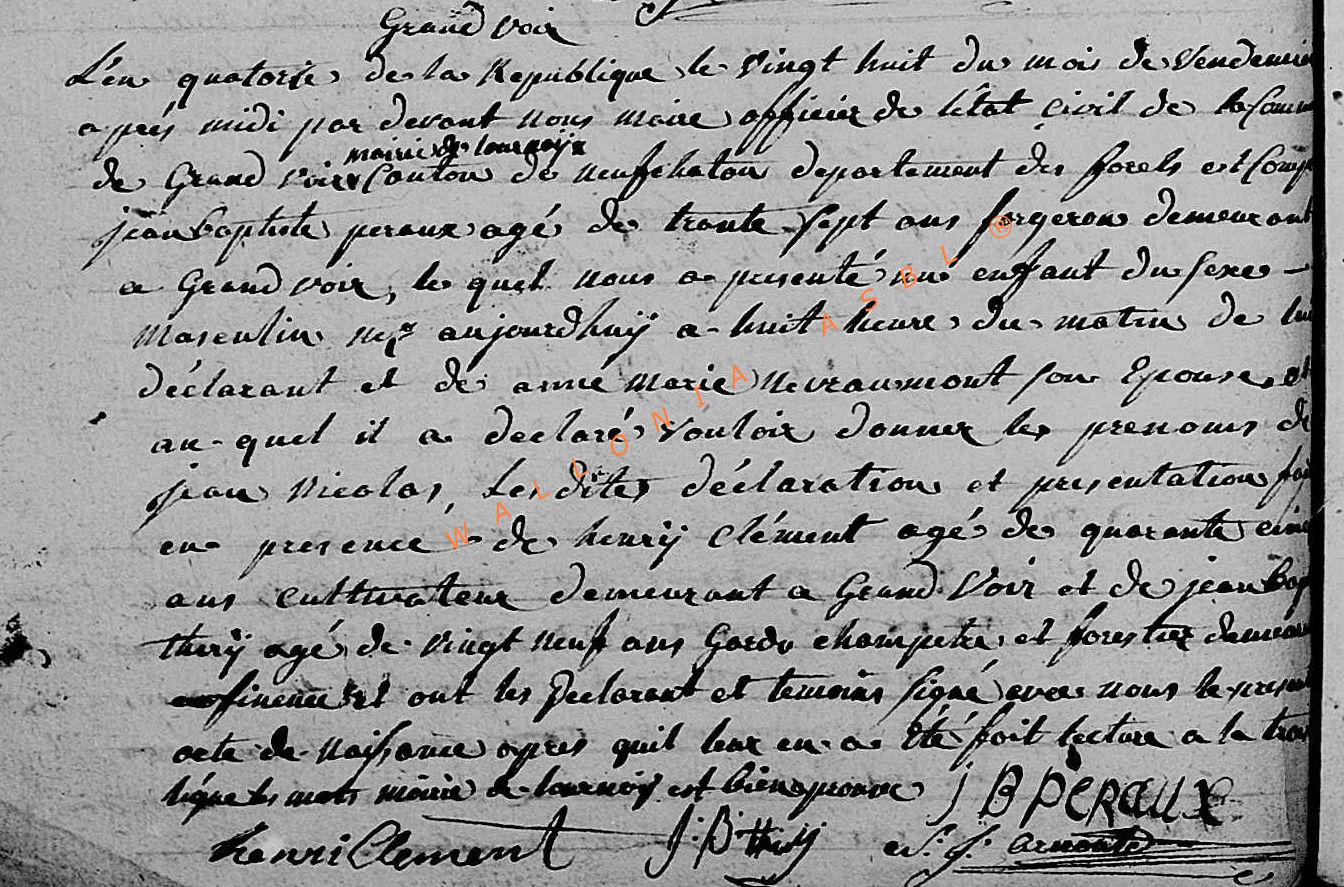 Grand voir
L'en quatorze de la Republique le vingt huit du mois de Vendemi
après midi par devant nous maire officier de l'état Civil de la Comm
mairie de tournaÿ
de Grand voir Canton de neufchatau departement des forets est Comp
jean baptiste peraux agé de trante sept ans forgeron demeurant
a Grand voir, le quel nous a presenté un enfant du sexe -
Masculin né aujourdhuÿ a huit heure du matin de lui
déclarant et de anne marie Nevraumont son Epouse, et
au quel il a declaré vouloir donner les prenoms de
jean Nicolas, Les dites déclaration et presentation fai
en presence de henrÿ Clément agé de quarante cinq
ans cultivateur demeurant a Grand Voir et de jean bap
therÿ agé de vingt neuf ans Garde champetre et forestier demeura
et ont les Declarant et temoins signé avec nous le present
acte de naissance apres quil leur en a été fait lecture a la trois
ligne les mots mairie de tournaÿ est bien aprouve J B PERAUX
henri Clement J: B: thirÿ
WALLONIA ASBL ®